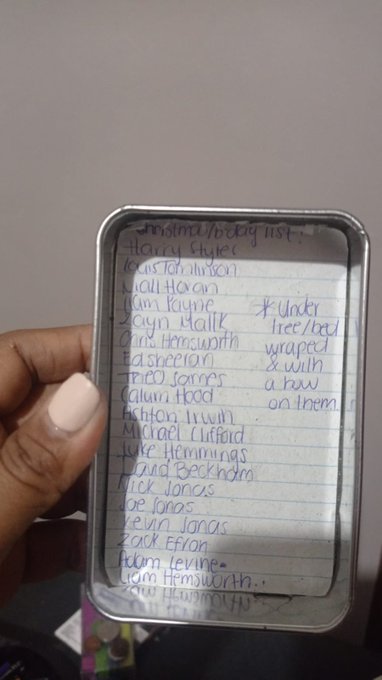 Christmas/b-day list:
Harry Styles
Louis Tomlinson
Niall Horan
Liam Payne
Zayn Malik
Chris Hemsworth
Ed sheeran
Theo James
Calum Hood
Ashton Irwin
Michael Clifford
Luke Hemmings
David Beckham
Nick Jonas
Joe Jonas
Kevin Jonas
Zack Efron
Adam Levine
Liam Hemsworth..
* Under
tree/bed
wraped
& with
a bow
on them